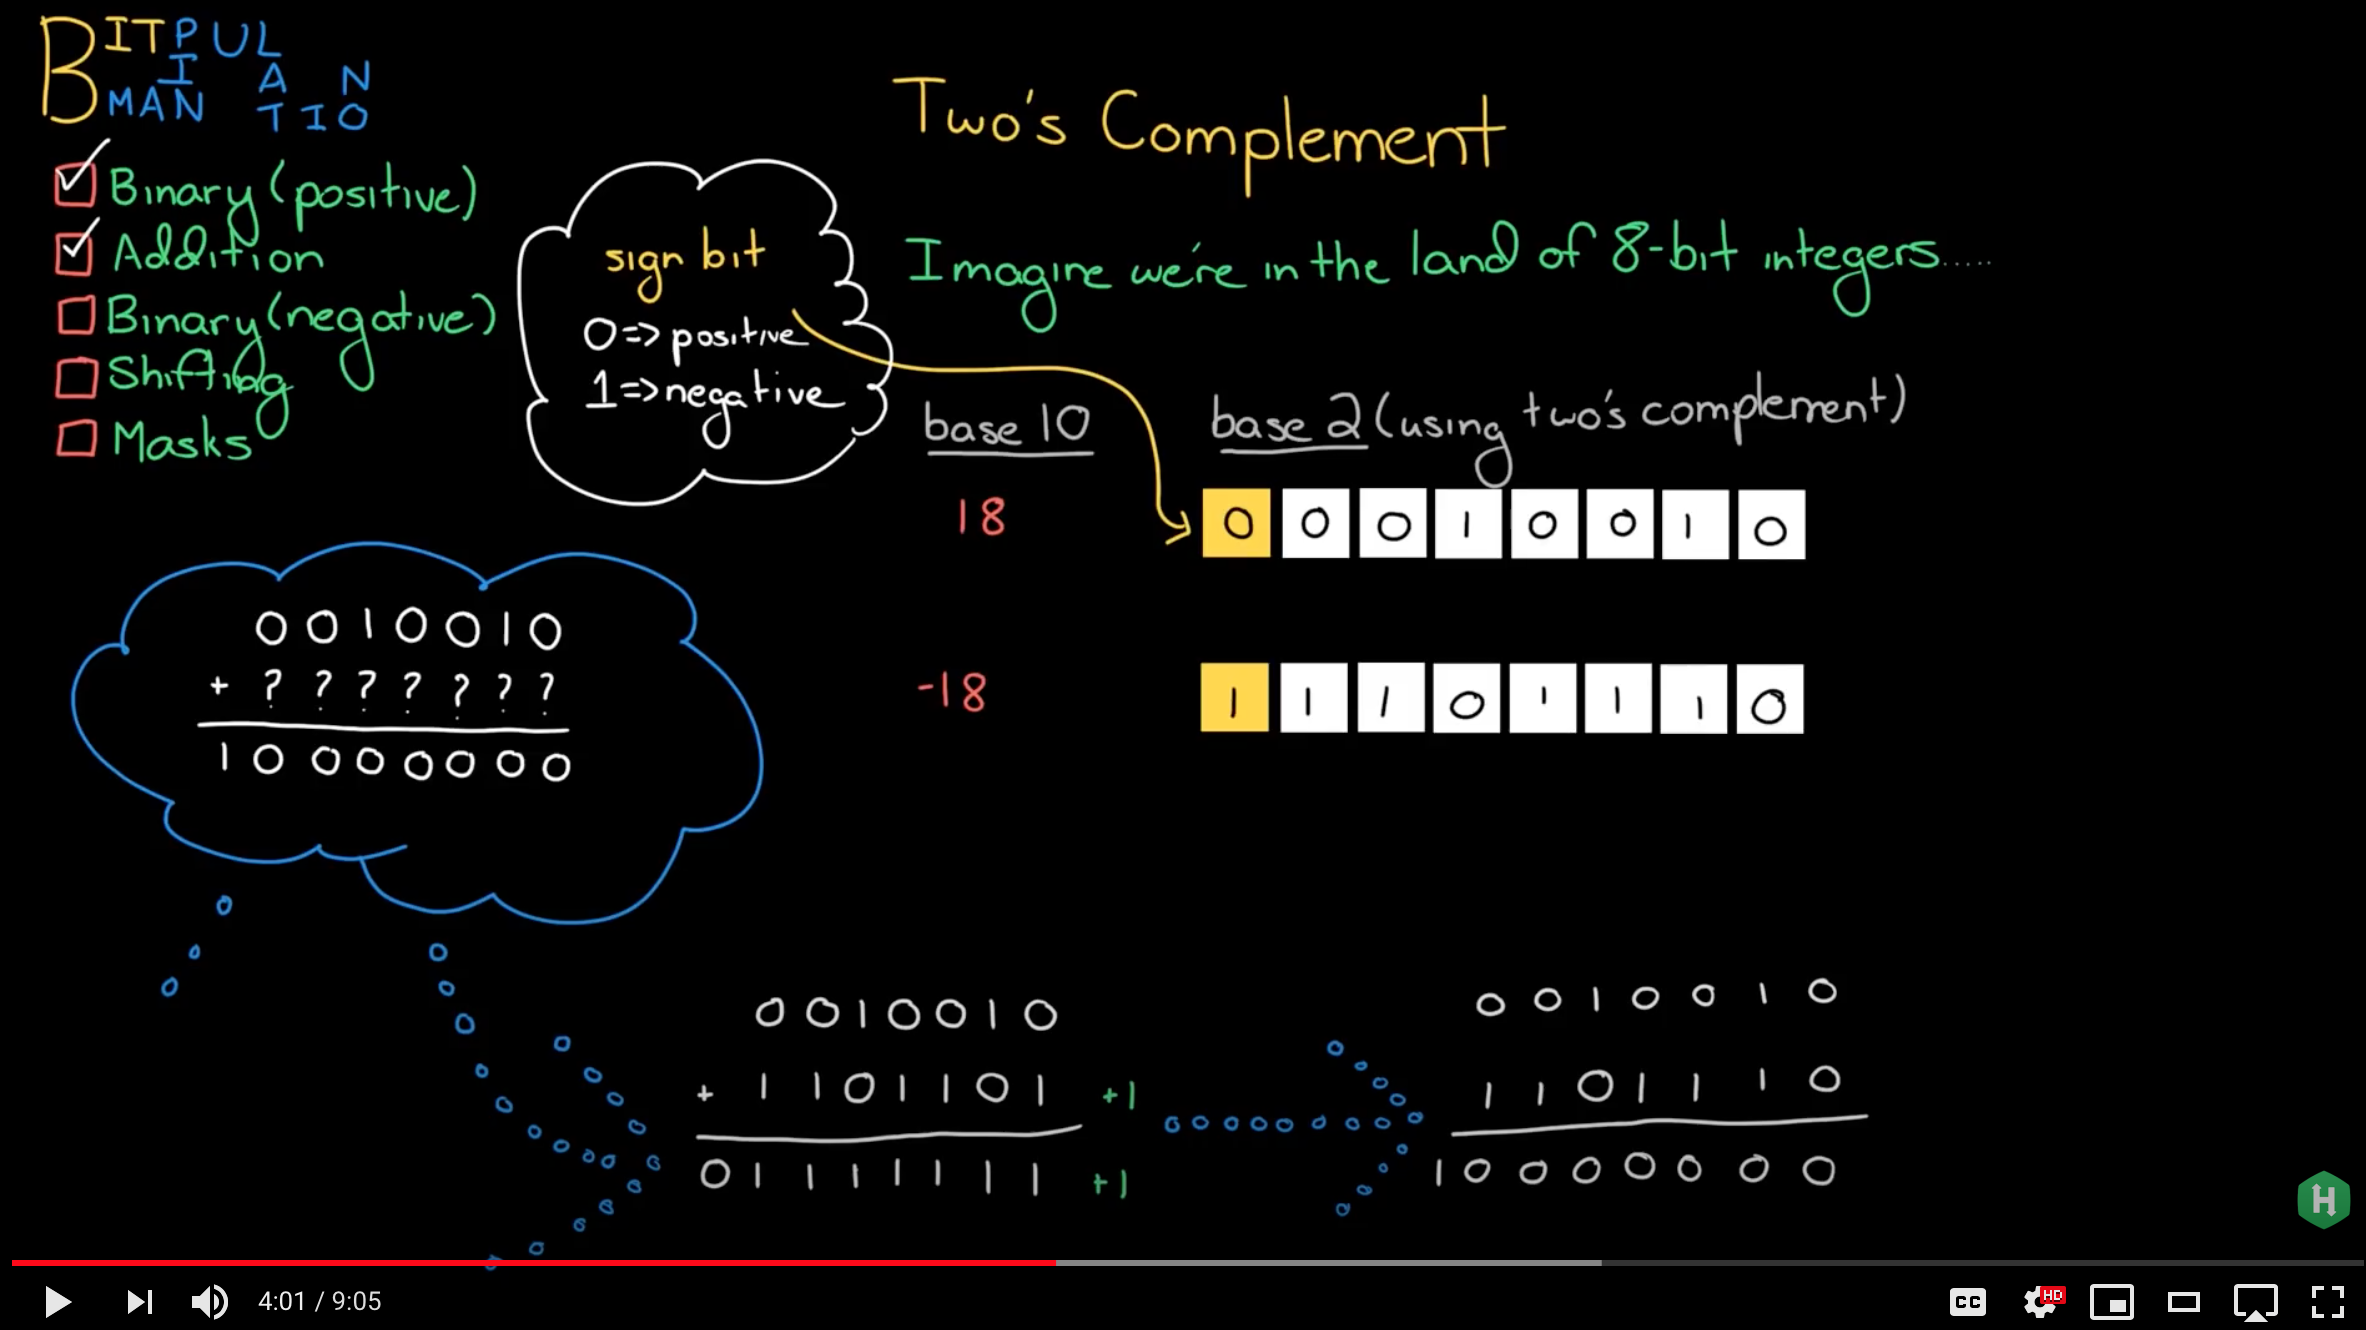 BIT MANIPULATION
Binary (positive)
Addition
Binary (negative)
Shifting
Masks
sign bit
0 => positive
1 => negative
Two's Complement
Imagine we're in the land of 8-bit integers.....
base 10
base 2 (using two's complement)
18
0 0 0 1 0 0 1 0
-18
1 1 1 0 1 1 1 0
0 0 1 0 0 1 0
+ ? ? ? ? ? ? ?
1 0 0 0 0 0 0 0
0 0 1 0 0 1 0
+ 1 1 0 1 1 0 1 +1
0 1 1 1 1 1 1 1 +1
0 0 1 0 0 1 0
1 1 0 1 1 1 0
1 0 0 0 0 0 0 0
H
4:01 / 9:05
CC
HD